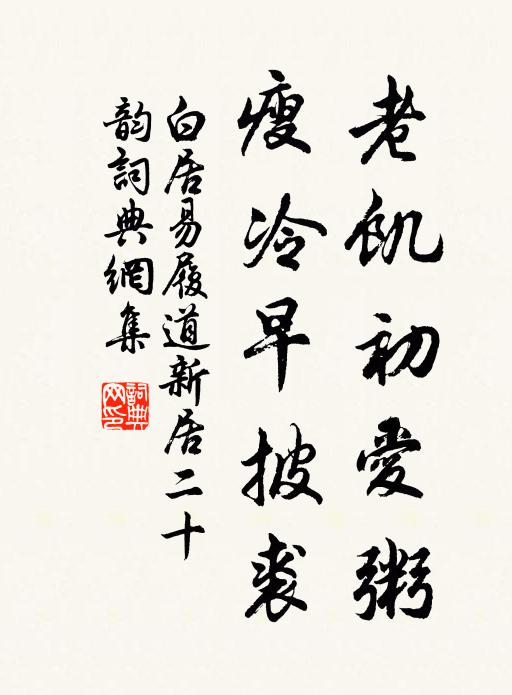 老飢初愛粥
瘦冷早披裘
白居易履道新居二十
韵詞典網集
詞典
网印